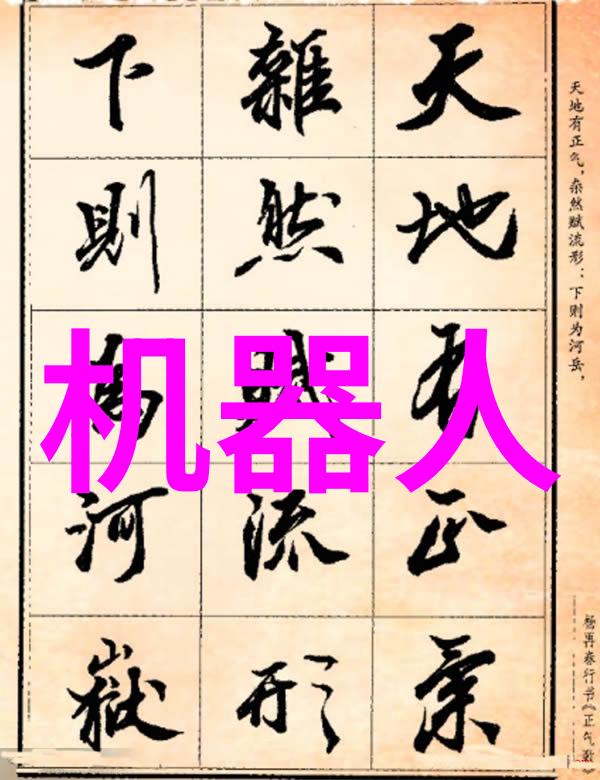 天地有正氣
雜然賦流形
下則為河嶽
天地有正气，杂然赋流形：下则为河岳，
杨再春行书《正气歌》
机器人